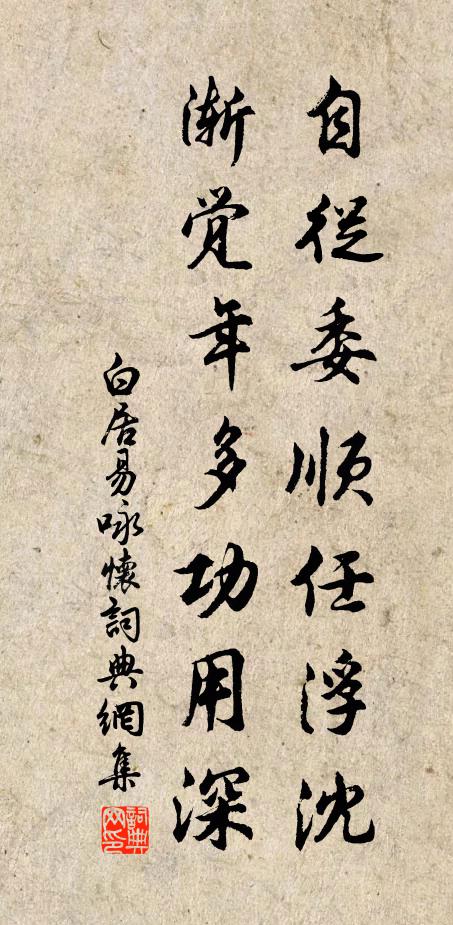 自從委順任浮沈
漸覺年多功用深
白居易詠懷詞典網集
詞典网印